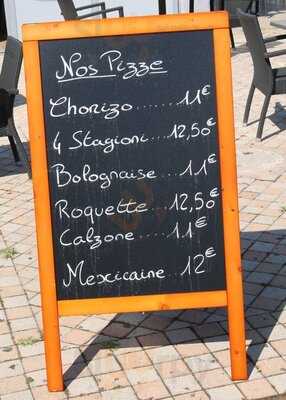 Nos Pizze
Chorizo......11€
4 Stagioni...12,50€
Bolognaise..11€
Roquette...12,50€
Calzone....11€
Mexicaine..12€